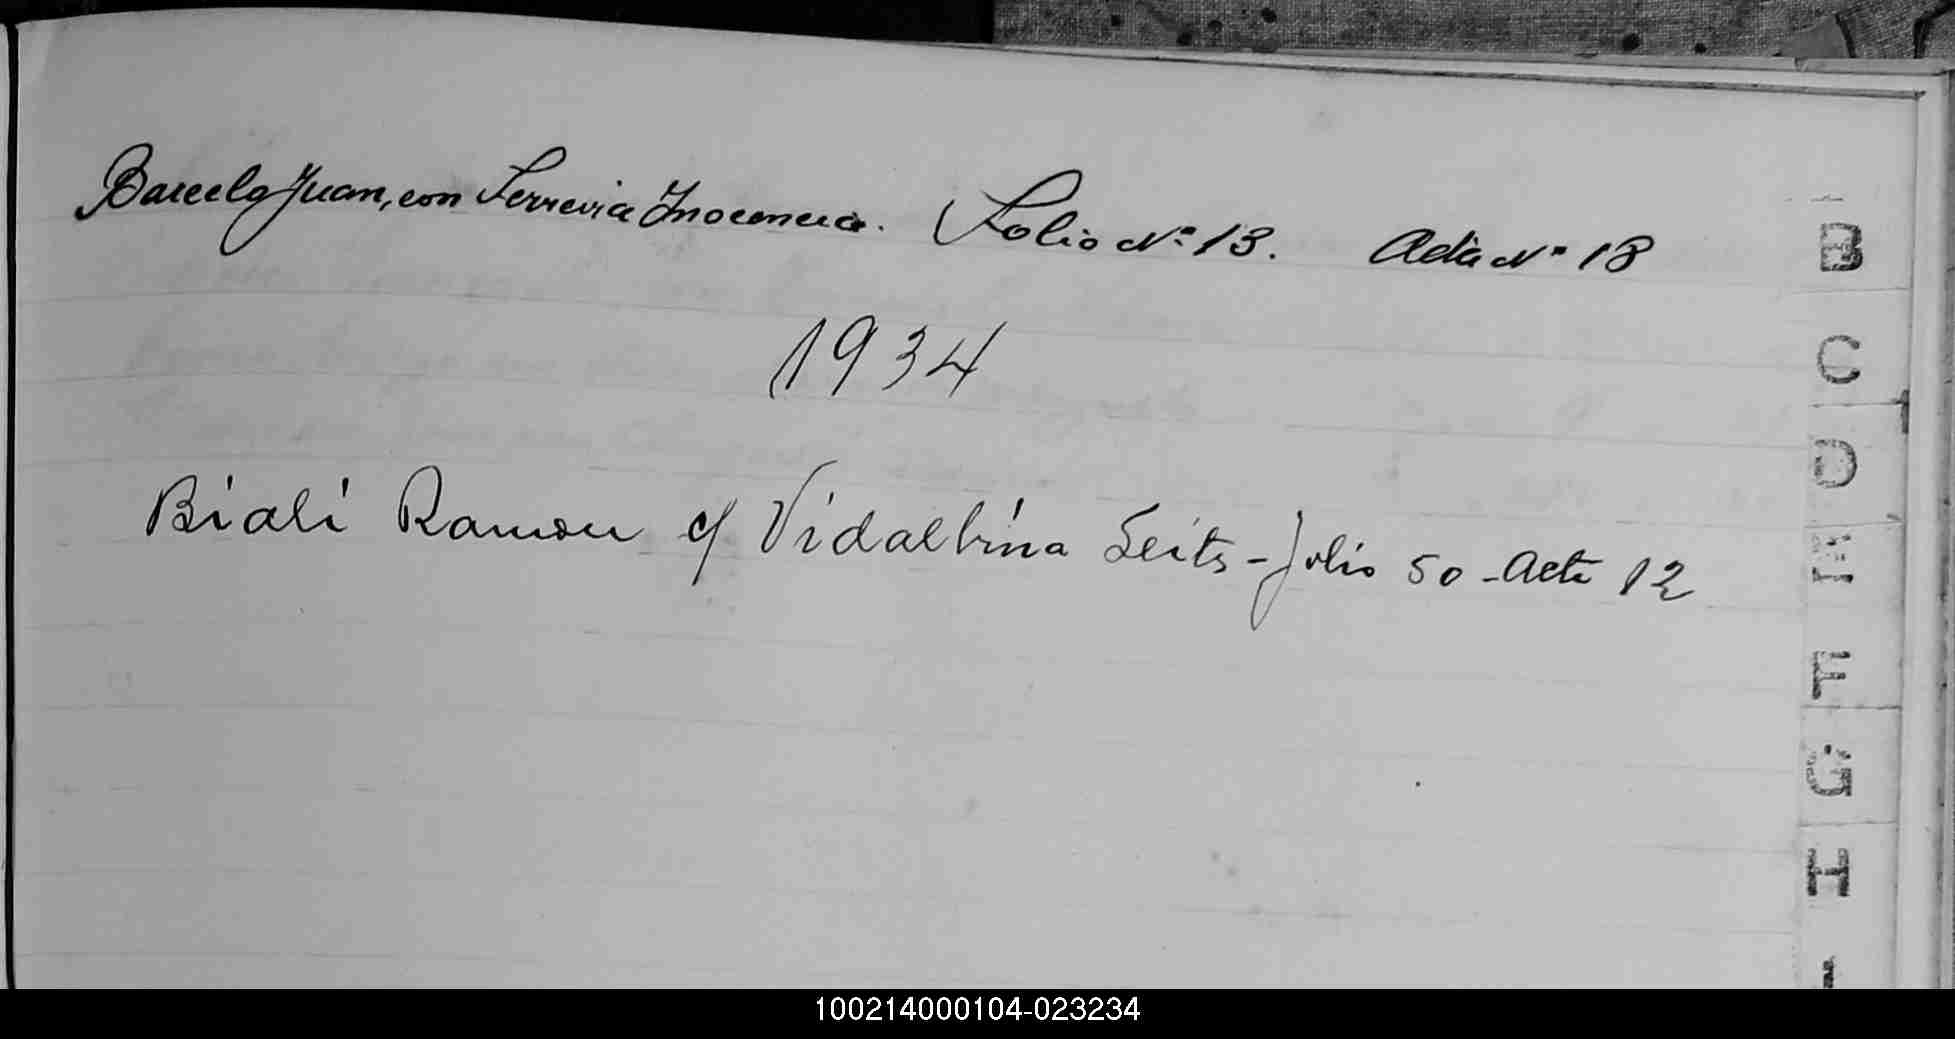 Barcelo Juan, con Ferreira Inocencia. Folio Nº 13. Acta Nº 13
1934
Biali Ramon c/ Vidalbina Seits - folio 50 - Acta 12
B
C
D
E
F
G
H
I
100214000104-023234